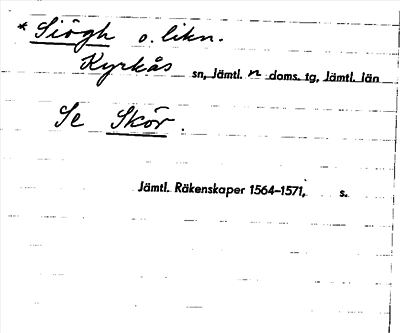 * Siögh o. likn.
Kyrkås sn, Jämtl. n doms. tg, Jämtl. län
Se Skör.
Jämtl. Räkenskaper 1564–1571, s.